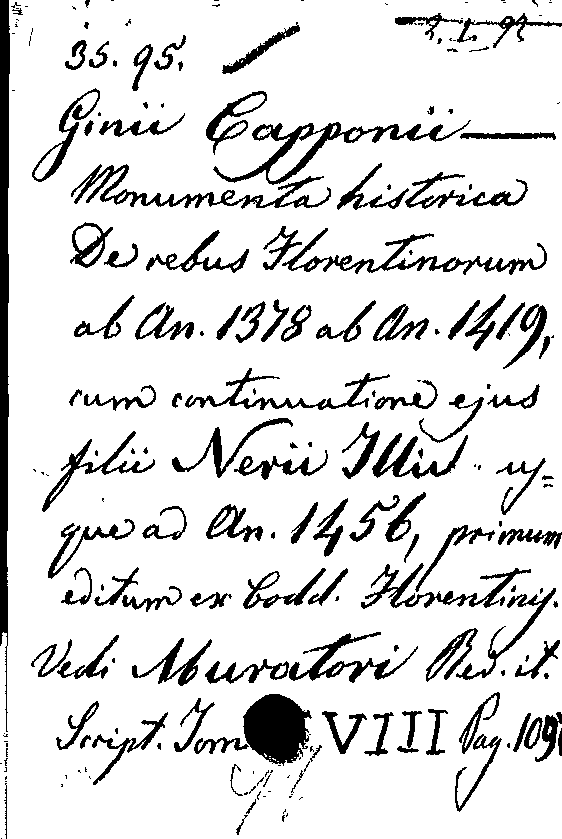 35. 95. 2. 1. 92
Ginii Capponii —
Monumenta historica
De rebus Florentinorum
ab An. 1378 ab An. 1419,
cum continuatione ejus
filii Nerii Illius us=
que ad An. 1456, primum
editum ex Codd. Florentinis.
Vedi Muratori Red. it.
Script. Tom VIII Pag. 109